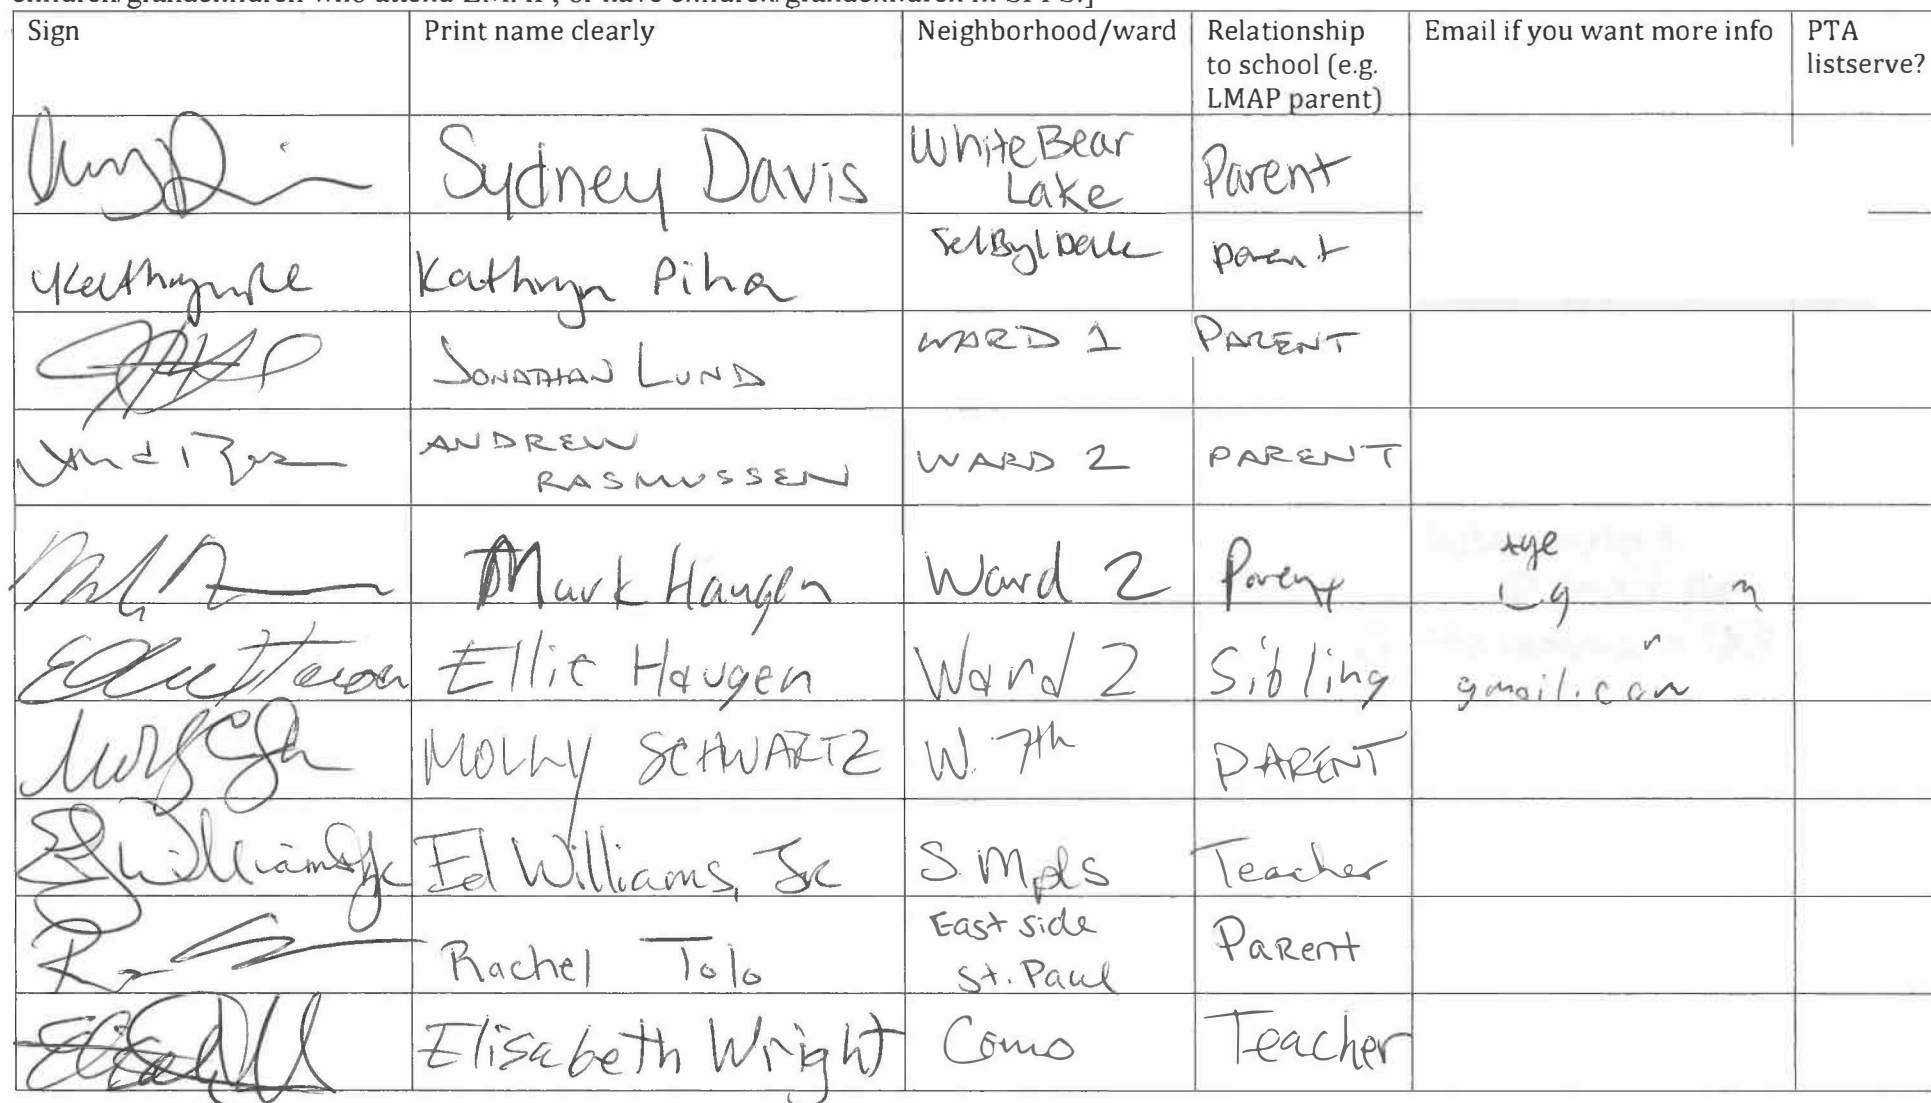 children/grandchildren who attend LMAP, or have children/grandchildren in SPPS.]
Sign Print name clearly Neighborhood/ward Relationship to school (e.g. LMAP parent) Email if you want more info PTA listserve?
Sydney Davis White Bear Lake Parent
Kathryn Piha Selby/Dale parent
JONATHAN LUND WARD 1 PARENT
ANDREW RASMUSSEN WARD 2 PARENT
Mark Haugen Ward 2 Parent
Ellie Haugen Ward 2 Sibling gmail.com
MOLLY SCHWARTZ W. 7th PARENT
Ed Williams, Jr Ed Williams, Jr S. Mpls Teacher
Rachel Tolo East side St. Paul Parent
Elisabeth Wright Como Teacher